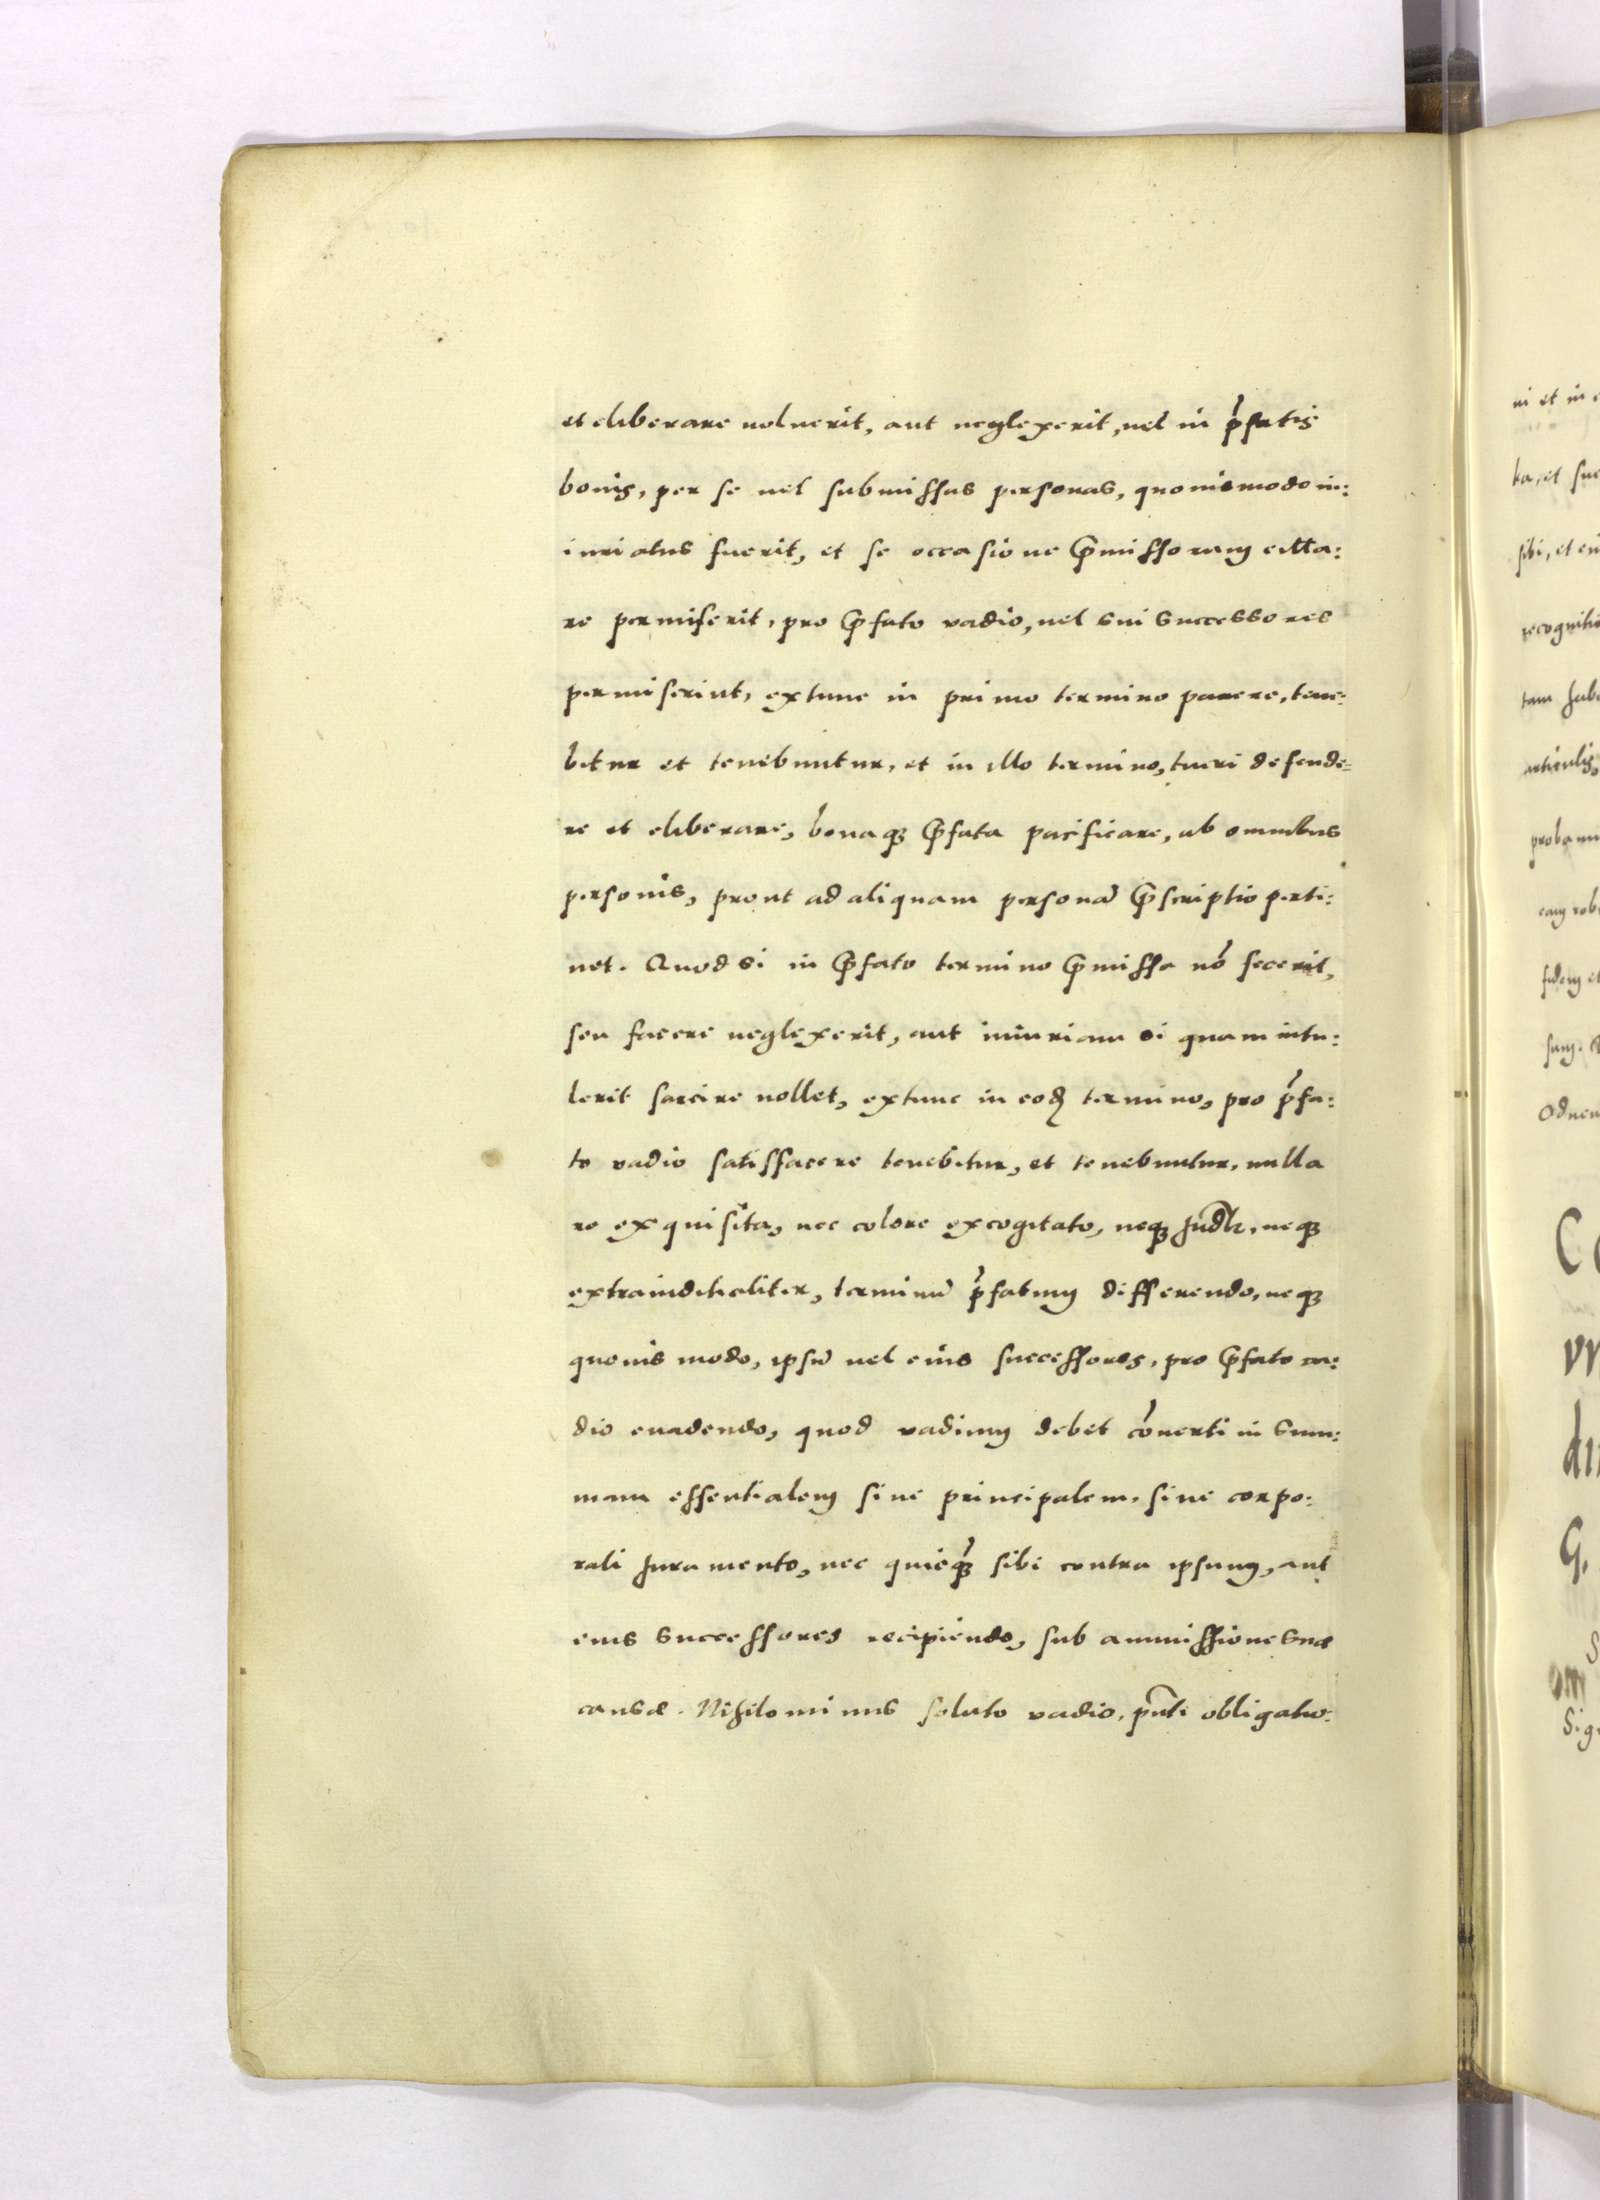 et eliberare noluerit, aut neglexerit, uel in p̃fatis
bonis, per se uel submissus personas, quouismodo in:
iuriatus fuerit, et se occasione p̃missorum citta:
re permiserit, pro p̃fato vadio, uel sui successores
permiserint, extunc in primo termino parere, tene:
bitur et tenebuntur, et in illo termino, tueri defende:
re et eliberare, bonaqꝫ p̃fata pacificare, ab omnibus
personis, prout ad aliquam personã p̃scriptio perti:
net. Quod si in p̃fato termino p̃missa nõ fecerit,
seu facere neglexerit, aut iniuriam si quam intu:
lerit sarcire nollet, extunc in eodꝫ termino, pro p̃fa:
to vadio satisfacere tenebitur, et tenebuntur, nulla
re exquisita, nec colore excogitato, neqꝫ Iudlr, neqꝫ
extraiudicialiter, terminũ p̃fatum differendo, neqꝫ
quouis modo, ipsũ uel eius successores, pro p̃fato va:
dio euadendo, quod vadium debet cõuerti in sum:
mam essentialem siue principalem, sine corpo:
rali Iuramento, nec quicqꝫ̃ sibi contra ipsum, aut
eius successores recipiendo, sub ammissione suæ
causæ. Nihilominus soluto vadio, pñti obligatio:
ni et in
ta, et suc
sibi, et
recognitio
tam habe
articulis,
proba
eam rob
fidem et
sum.
Odnew